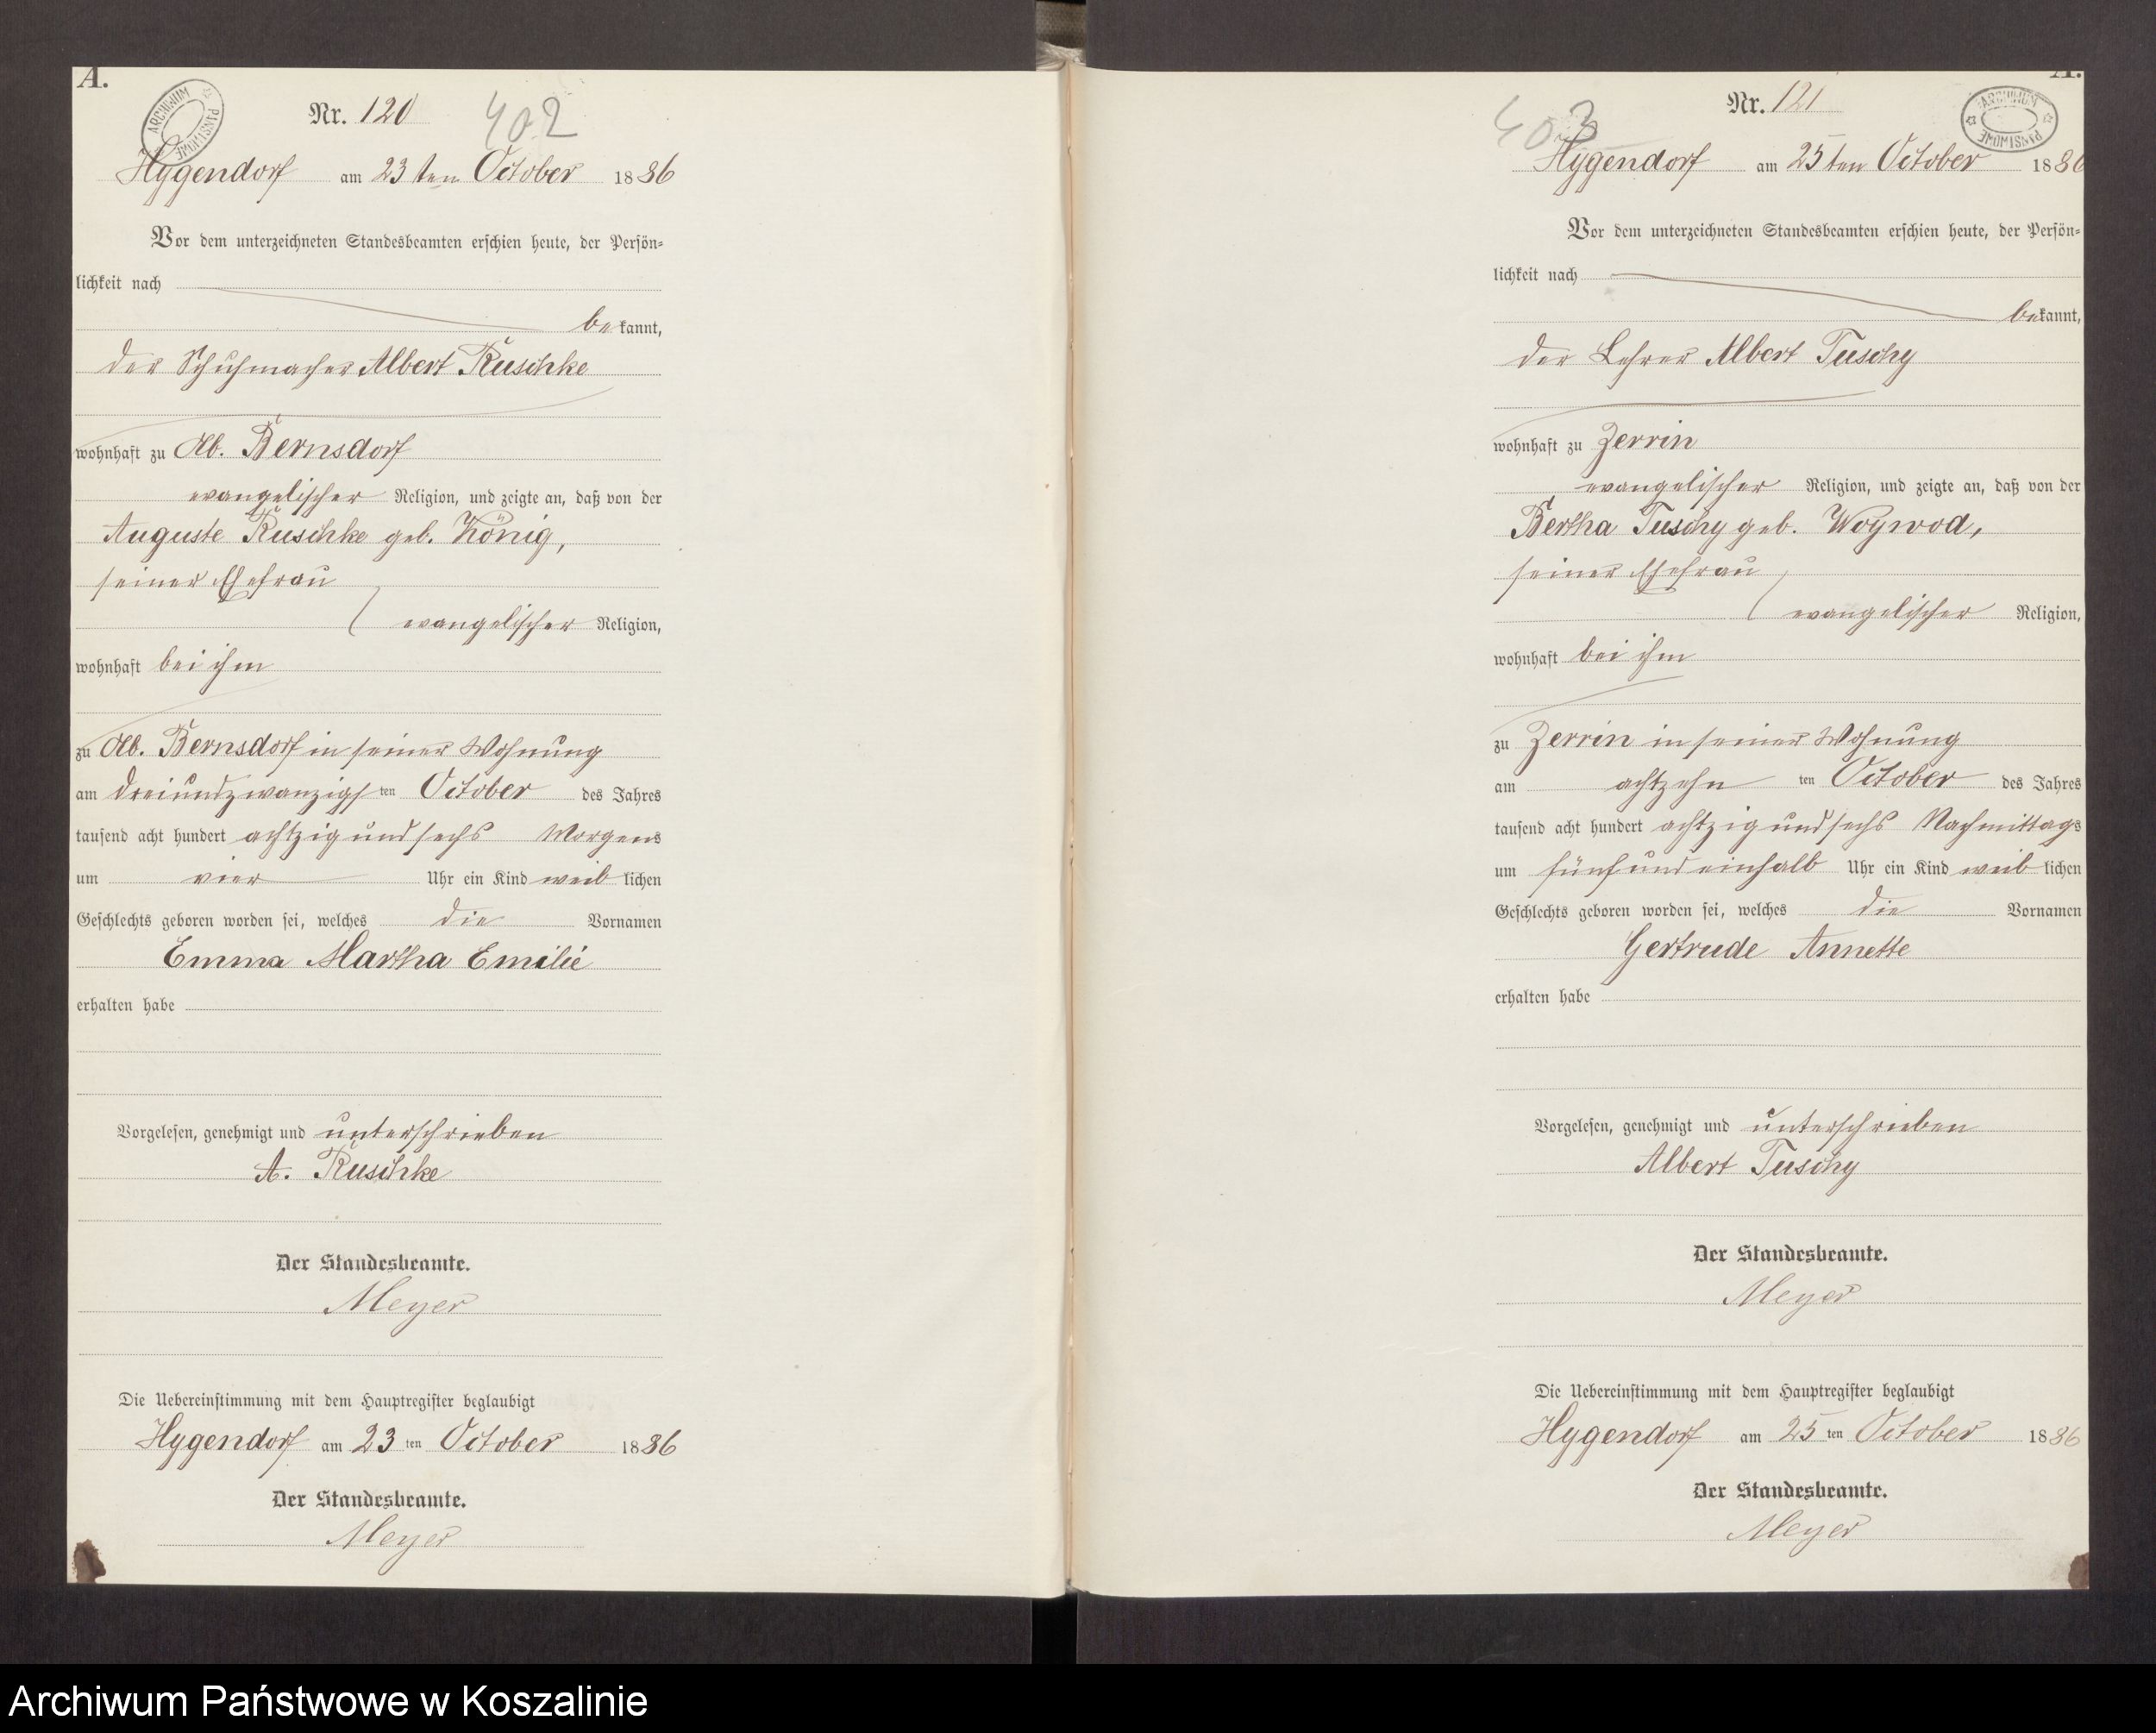 A.
ARCHIWUM PAŃSTWOWE
Nr. 120
402
Hygendorf am 23ten October 1886
Vor dem unterzeichneten Standesbeamten erschien heute, der Persön-
lichkeit nach
bekannt,
der Schuhmacher Albert Ruschke
wohnhaft zu Alb. Bernsdorf
evangelischer Religion, und zeigte an, daß von der
Auguste Ruschke geb. König,
seiner Ehefrau
evangelischer Religion,
wohnhaft bei ihm
zu Alb. Bernsdorf in seiner Wohnung
am dreiundzwanzigsten October des Jahres
tausend acht hundert achtzig und sechs Morgens
um vier Uhr ein Kind weiblichen
Geschlechts geboren worden sei, welches die Vornamen
Emma Martha Emilie
erhalten habe
Vorgelesen, genehmigt und unterschrieben
A. Ruschke
Der Standesbeamte.
Meyer
Die Uebereinstimmung mit dem Hauptregister beglaubigt
Hygendorf am 23ten October 1886
Der Standesbeamte.
Meyer
A.
ARCHIWUM PAŃSTWOWE
Nr. 121
403
Hygendorf am 25ten October 1886
Vor dem unterzeichneten Standesbeamten erschien heute, der Persön-
lichkeit nach
bekannt,
der Lehrer Albert Tuschy
wohnhaft zu Zerrin
evangelischer Religion, und zeigte an, daß von der
Bertha Tuschy geb. Woywod,
seiner Ehefrau
evangelischer Religion,
wohnhaft bei ihm
zu Zerrin in seiner Wohnung
am achtzehnten October des Jahres
tausend acht hundert achtzig und sechs Nachmittags
um fünf und einhalb Uhr ein Kind weiblichen
Geschlechts geboren worden sei, welches die Vornamen
Gertrude Annette
erhalten habe
Vorgelesen, genehmigt und unterschrieben
Albert Tuschy
Der Standesbeamte.
Meyer
Die Uebereinstimmung mit dem Hauptregister beglaubigt
Hygendorf am 25ten October 1886
Der Standesbeamte.
Meyer
Archiwum Państwowe w Koszalinie